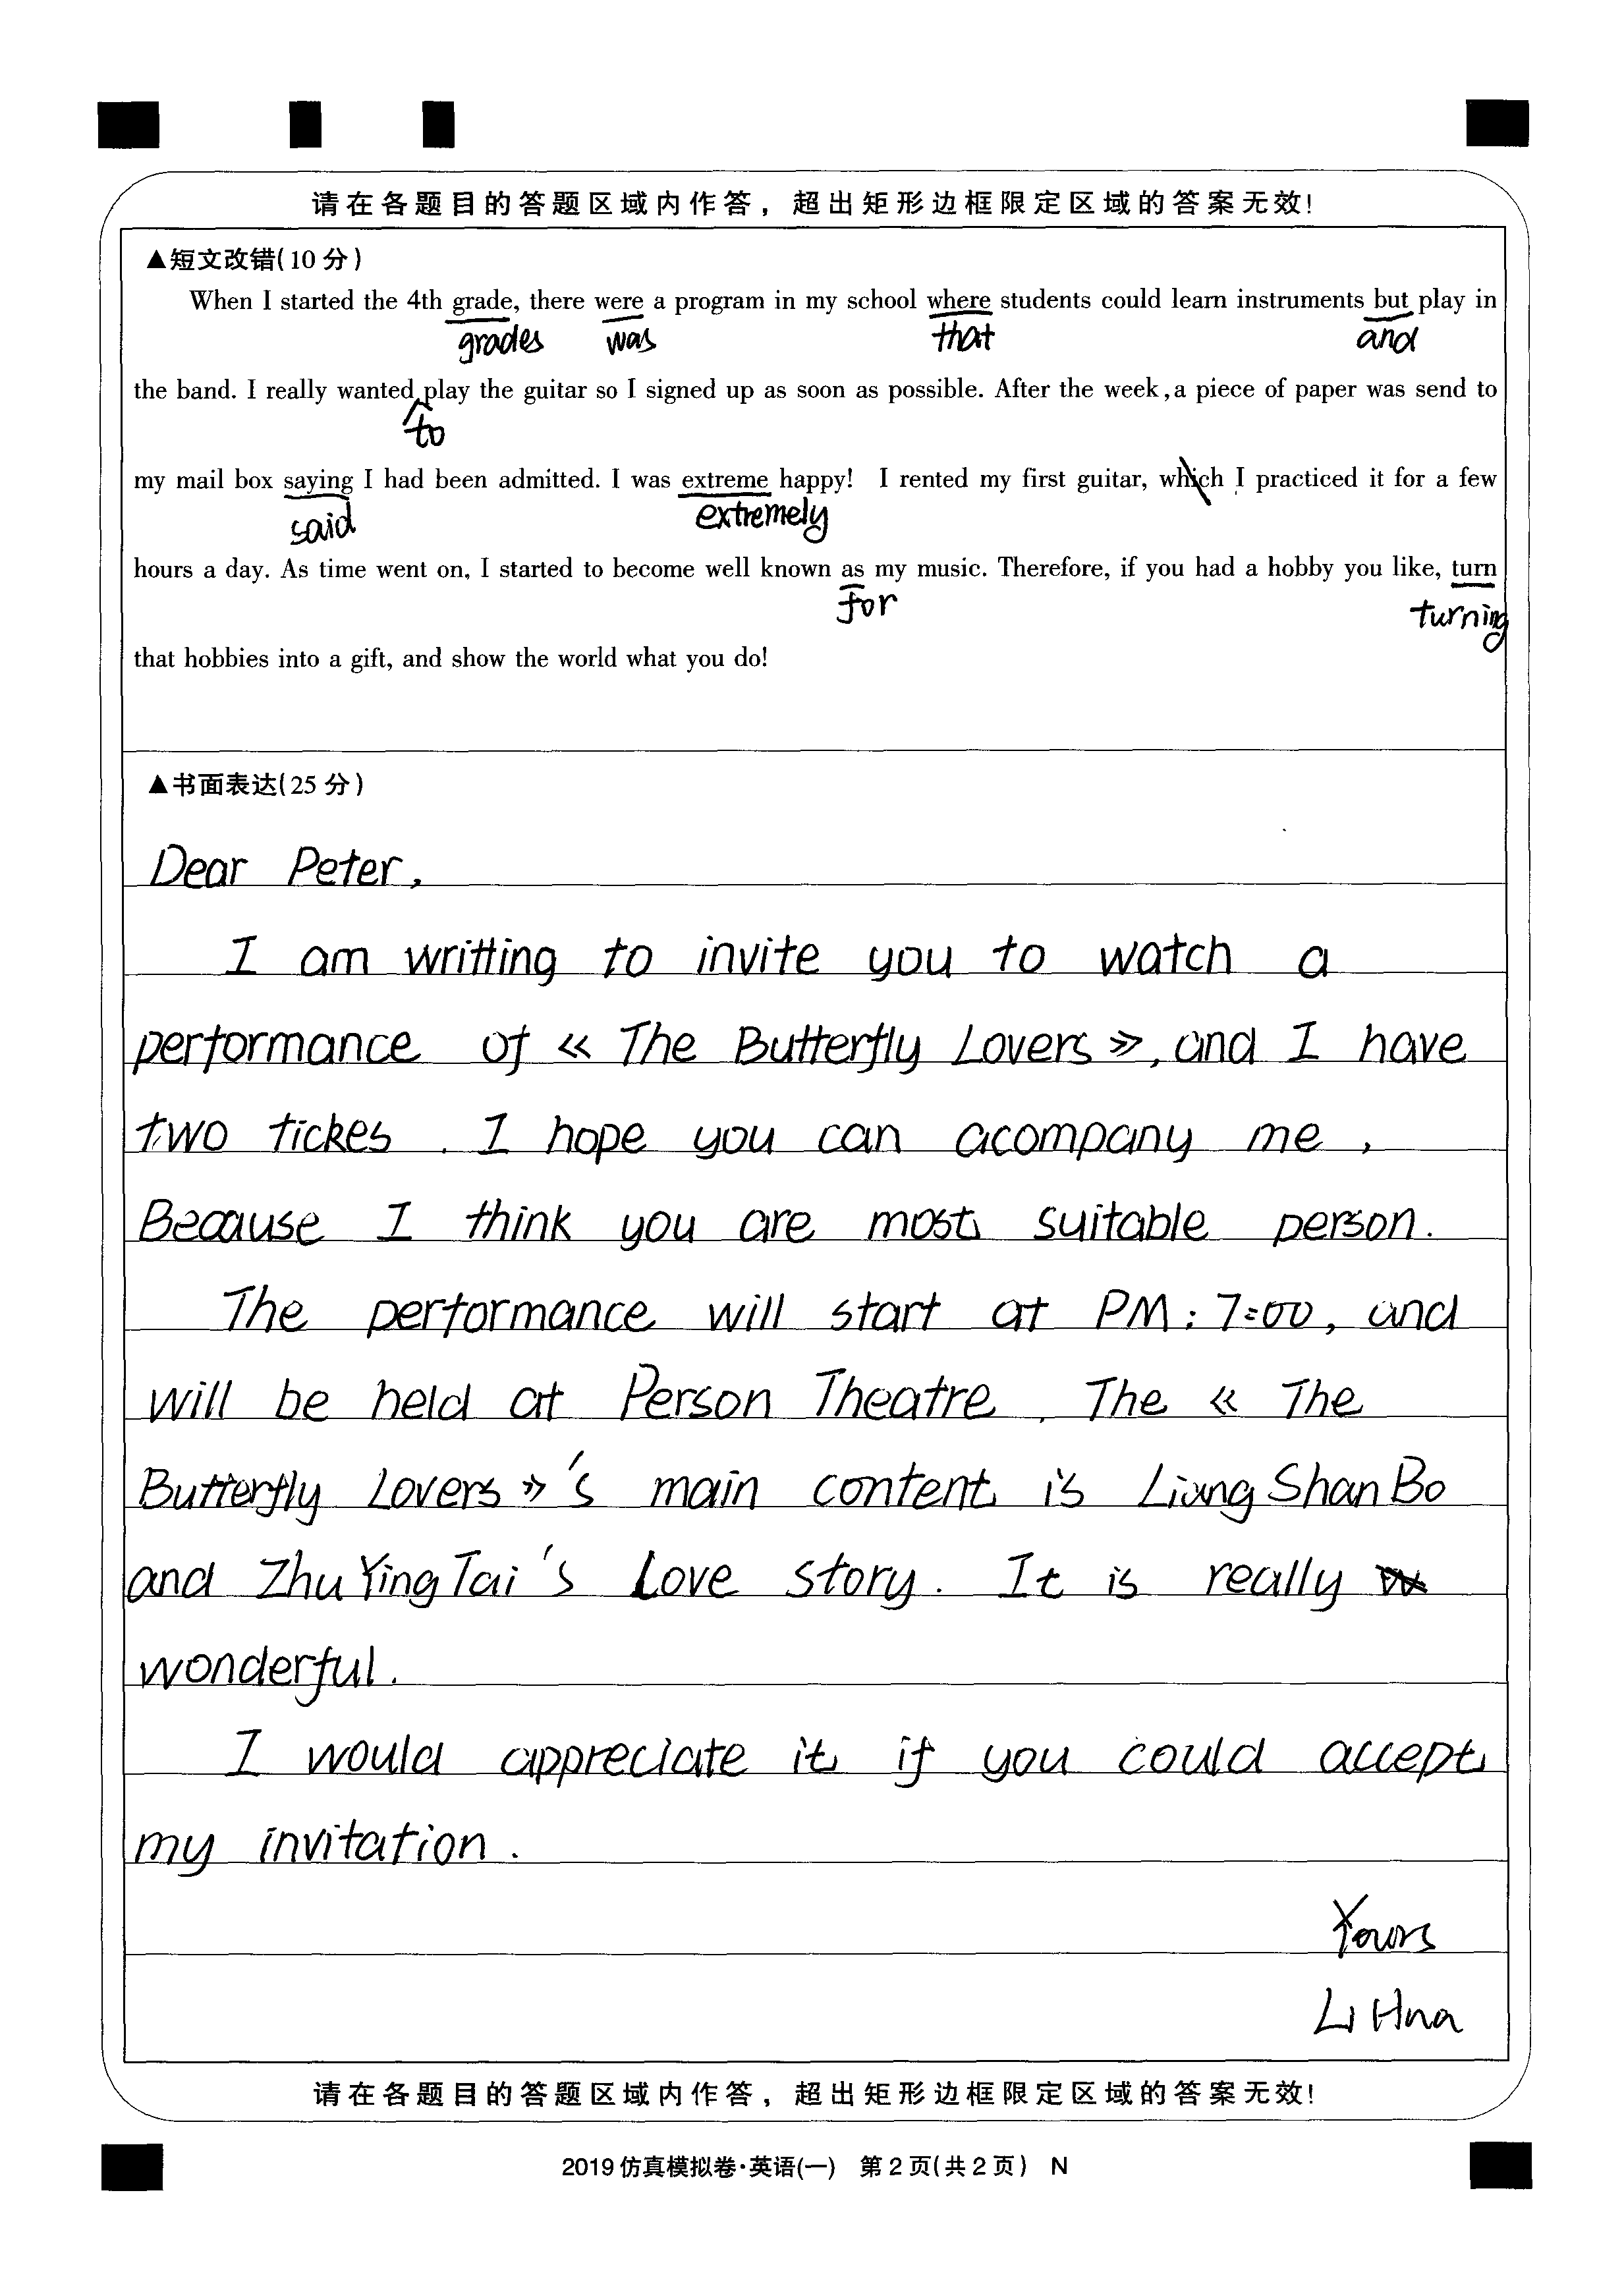 请在各题目的答题区域内作答，超出矩形边框限定区域的答案无效!
▲短文改错(10分)
When I started the 4th grade, there were a program in my school where students could learn instruments but play in
grades was that and
the band. I really wanted play the guitar so I signed up as soon as possible. After the week, a piece of paper was send to
to
my mail box saying I had been admitted. I was extreme happy! I rented my first guitar, which I practiced it for a few
said extremely
hours a day. As time went on, I started to become well known as my music. Therefore, if you had a hobby you like, turn
for turning
that hobbies into a gift, and show the world what you do!
▲书面表达(25分)
Dear Peter,
I am writting to invite you to watch a
performance of « The Butterfly Lovers », and I have
two tickes. I hope you can acompany me,
Because I think you are most suitable person.
The performance will start at PM: 7:00, and
will be held at Person Theatre. The « The
Butterfly Lovers »'s main content is Liang Shan Bo
and Zhu Ying Tai's Love story. It is really
wonderful.
I would appreciate it if you could accept
my invitation.
Yours
Li Hua
请在各题目的答题区域内作答，超出矩形边框限定区域的答案无效!
2019仿真模拟卷·英语(一) 第2页(共2页) N